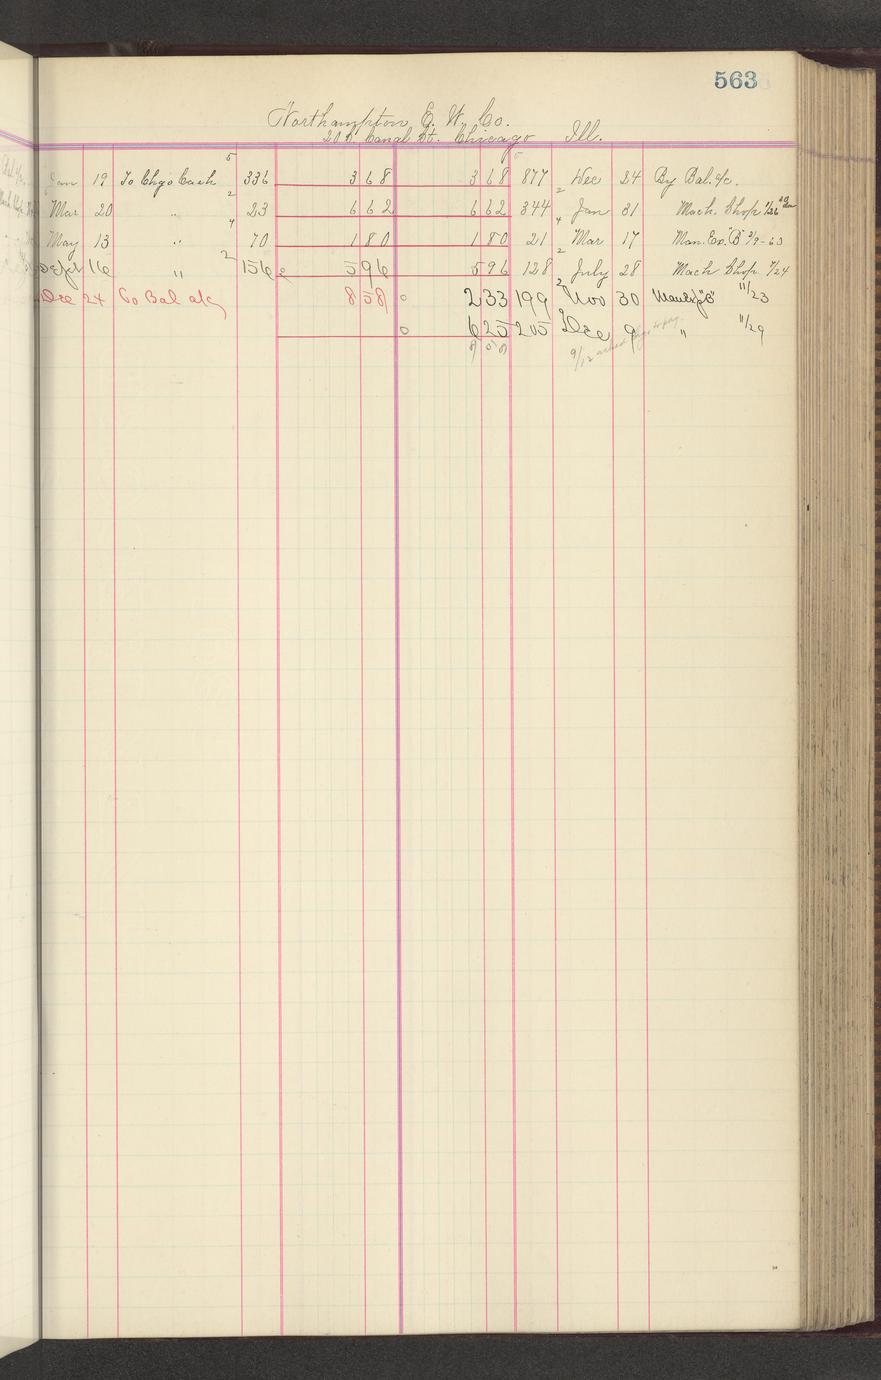 563
Northampton E. W. Co.
20 N. Canal St. Chicago Ill.
Jan 19 To Chgo Cash 5 336 3 68 3 68 877 Dec 24 By Bal. a/c.
Mar 20 " 2 23 6 62 6 62 344 2 Jan 31 Mach. Shop 1/26
May 13 " 4 70 1 80 1 80 21 4 Mar 17 Man. Ex. "B" 3/9-60
Sept 16 " 2 156 5 96 5 96 128 2 July 28 Mach Shop 7/24
Dec 24 To Bal a/c 8 58 2 33 199 2 Nov 30 "B" 11/23
6 25 205 2 Dec 9 " 11/29
8 58 9/12